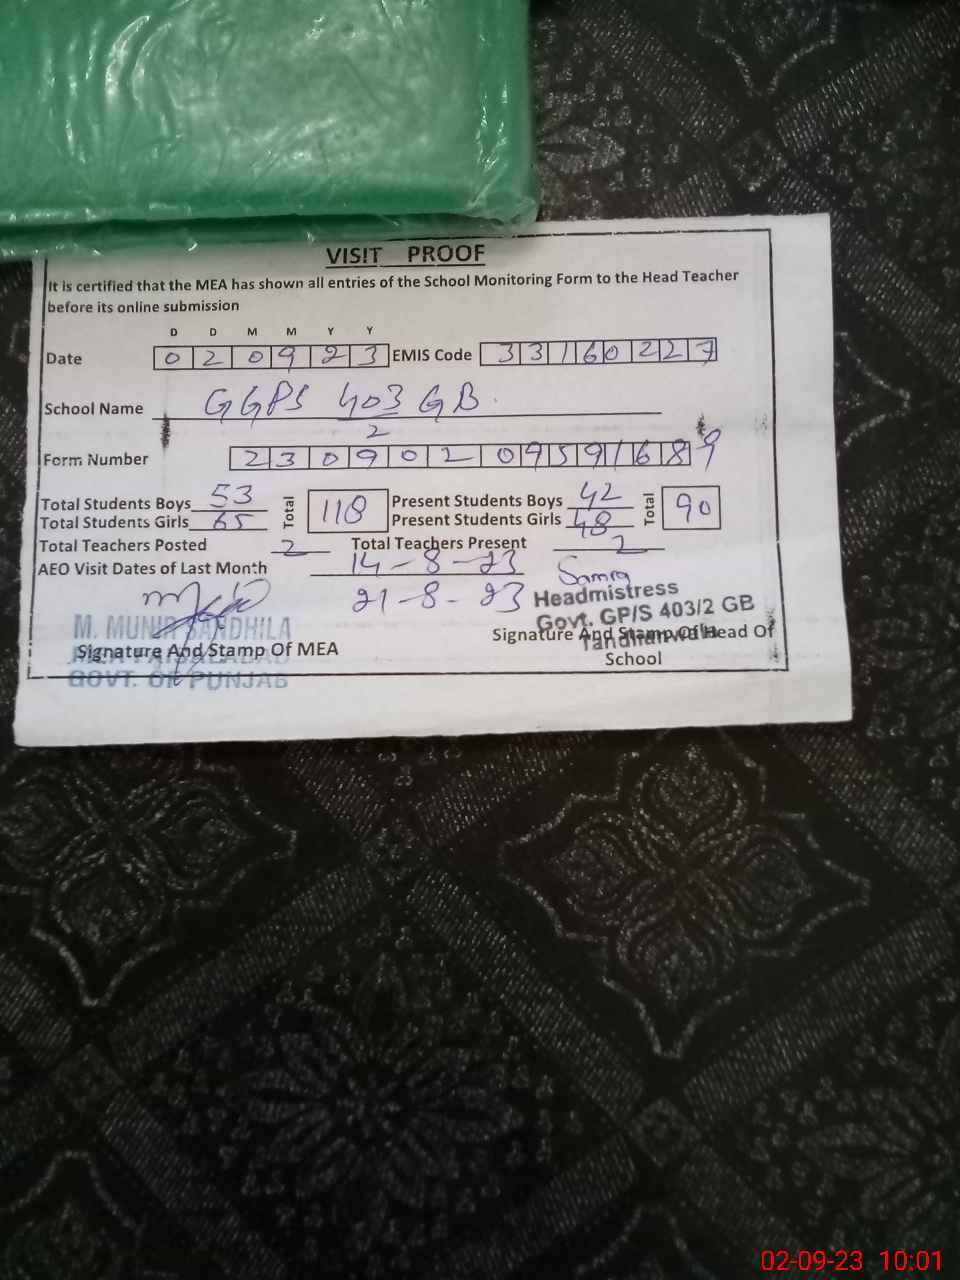 VISIT PROOF
It is certified that the MEA has shown all entries of the School Monitoring Form to the Head Teacher
before its online submission
D D M M Y Y
Date 0 2 0 9 2 3 EMIS Code 3 3 1 6 0 2 2 7
School Name GGPS 403 GB
2
Form Number 2 3 0 9 0 2 0 9 5 9 1 6 8 9
Total Students Boys 53 Total 118 Present Students Boys 42 Total 90
Total Students Girls 65 Present Students Girls 48
Total Teachers Posted 2 Total Teachers Present 2
AEO Visit Dates of Last Month 14-8-23
21-8-23
Samra
Headmistress
Govt. GP/S 403/2 GB
M. MUNIR SANDHILA
Signature And Stamp Of MEA
GOVT. OF PUNJAB
Signature And Stamp Of Head Of
School
02-09-23 10:01